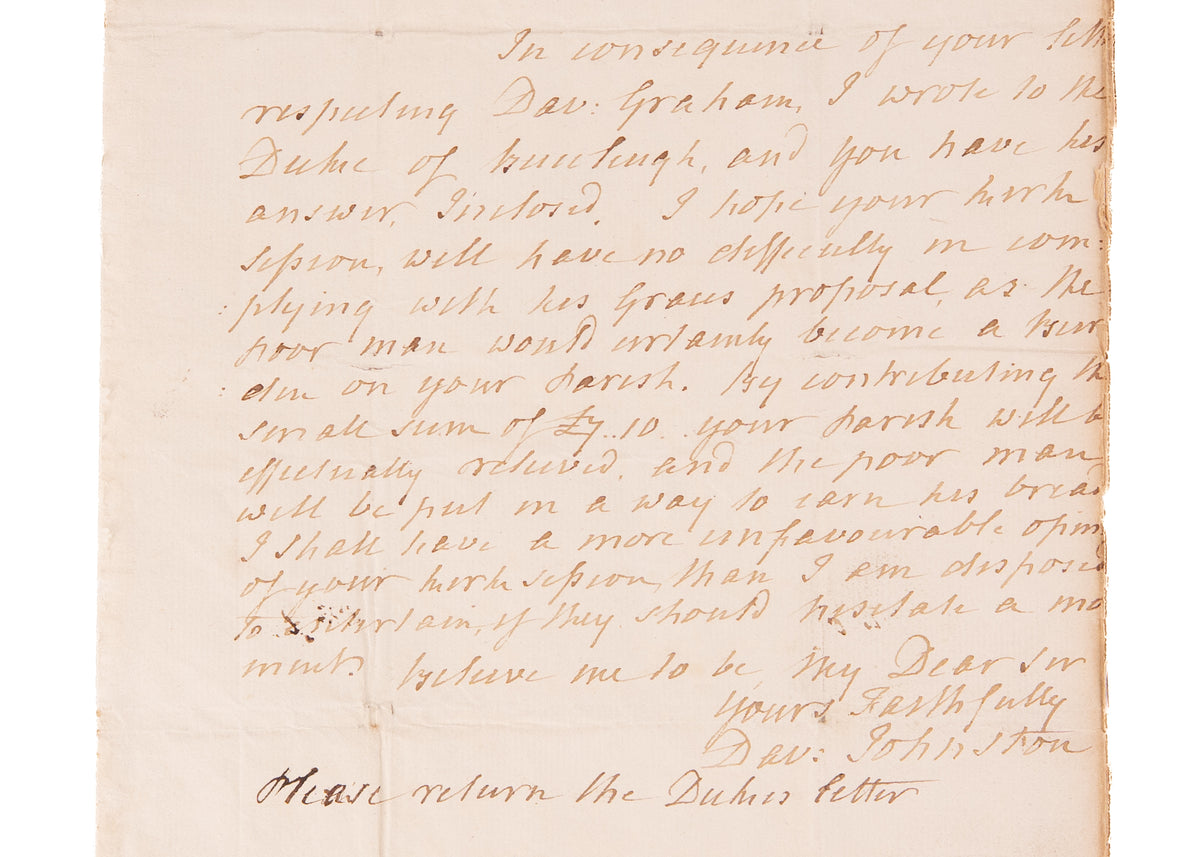 In consequence of your lett
respecting Dav: Graham, I wrote to the
Duke of Buccleugh, and you have his
answer, Inclosed. I hope your kirk
session, will have no difficulty in com:
: plying with his Graces proposal, as the
poor man would certainly become a Bur
: den on your Parish. By contributing th
small sum of £7..10.. your Parish will b
effectually relieved, and the poor man
will be put in a way to earn his bread
I shall have a more unfavourable opin
of your kirk session, than I am disposed
to entertain, if they should hesitate a mo
ment. Believe me to be, My Dear Sir
yours Faithfully
Dav: Johnston
Please return the Dukes letter